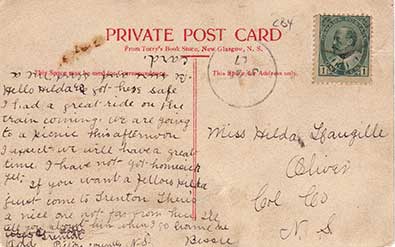 C34
PRIVATE POST CARD
From Torry's Book Store, New Glasgow, N. S.
This Space may be used for Correspondence
This Space for Address only.
17
1 1
Hello Hilda got here safe
I had a great ride on the
train coming. we are going
to a picnic this afternoon
I expect we will have a great
time. I have not got homesick
yet. If you want a fellow Hilda
just come to Trenton There's
a nice one not far from here I'll
tell you about him when I go home
Trenton
Pictou County N.S. Bessie
card.
Miss Hilda Langille
Oliver
Col Co
N. S